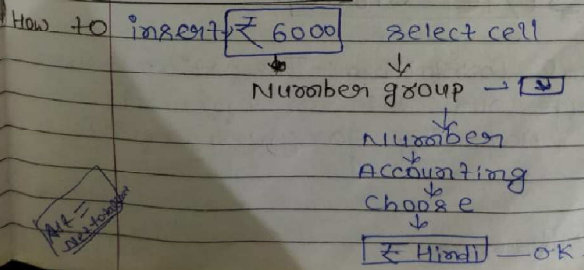 How to insert ₹ 6000 select cell
↓ ↓
Number group →
↓
Number
↓
Accounting
↓
Choose
↓
₹ Hindi — OK